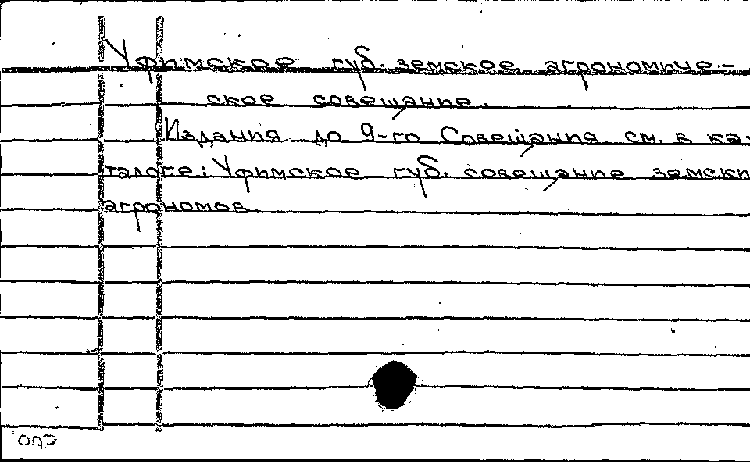 Уфимское губ. земское агрономиче-
ское совещание.
Издания до 9-го Совещания см. в ка-
талоге: Уфимское губ. совещание земски
агрономов.